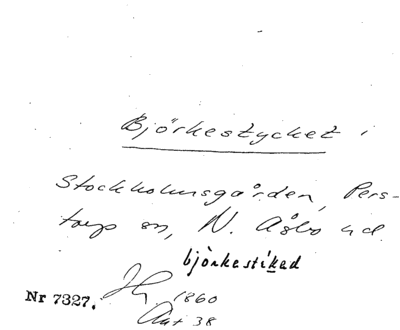 Björkestycket i
Stockholmsgården, Pers-
torp sn, N. Åsbo hd.
björkestiked
Nr 7327. 1860
38